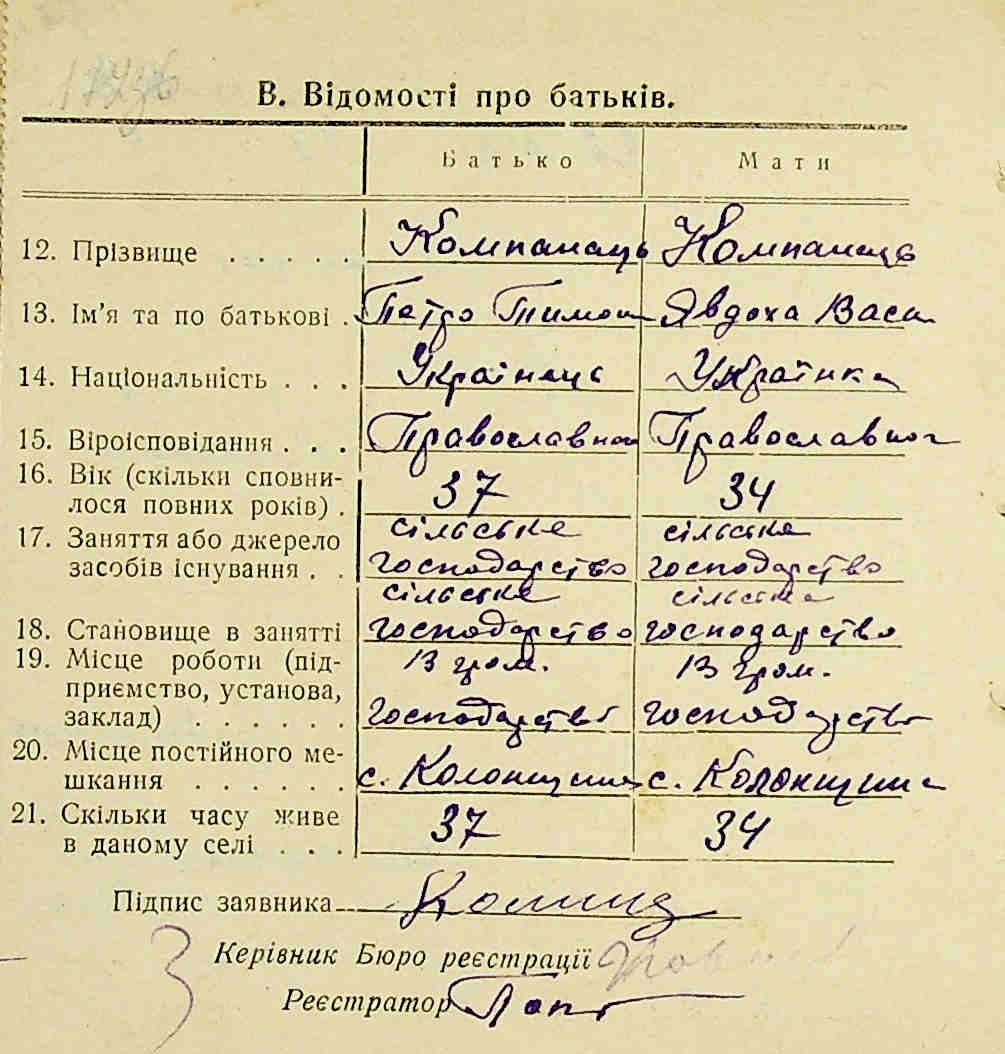 В. Відомості про батьків.
Батько Мати
12. Прізвище . . . . . Компанаць Компанаць
13. Ім'я та по батькові . Петро Тимош Явдоха Васи
14. Національність . . . Українець Українка
15. Віроісповідання . . . Православног Православног
16. Вік (скільки сповни-
лося повних років) . 37 34
сільське сільське
17. Заняття або джерело
засобів існування . . господарство господарство
сільське сільське
18. Становище в занятті господарство господарство
19. Місце роботи (під- В гром. В гром.
приємство, установа,
заклад) . . . . . . господарстві господарстві
20. Місце постійного ме-
шкання . . . . . . с. Колонщина с. Колонщина
21. Скільки часу живе 37 34
в даному селі . . .
Підпис заявника
Керівник Бюро реєстрації
Реєстратор